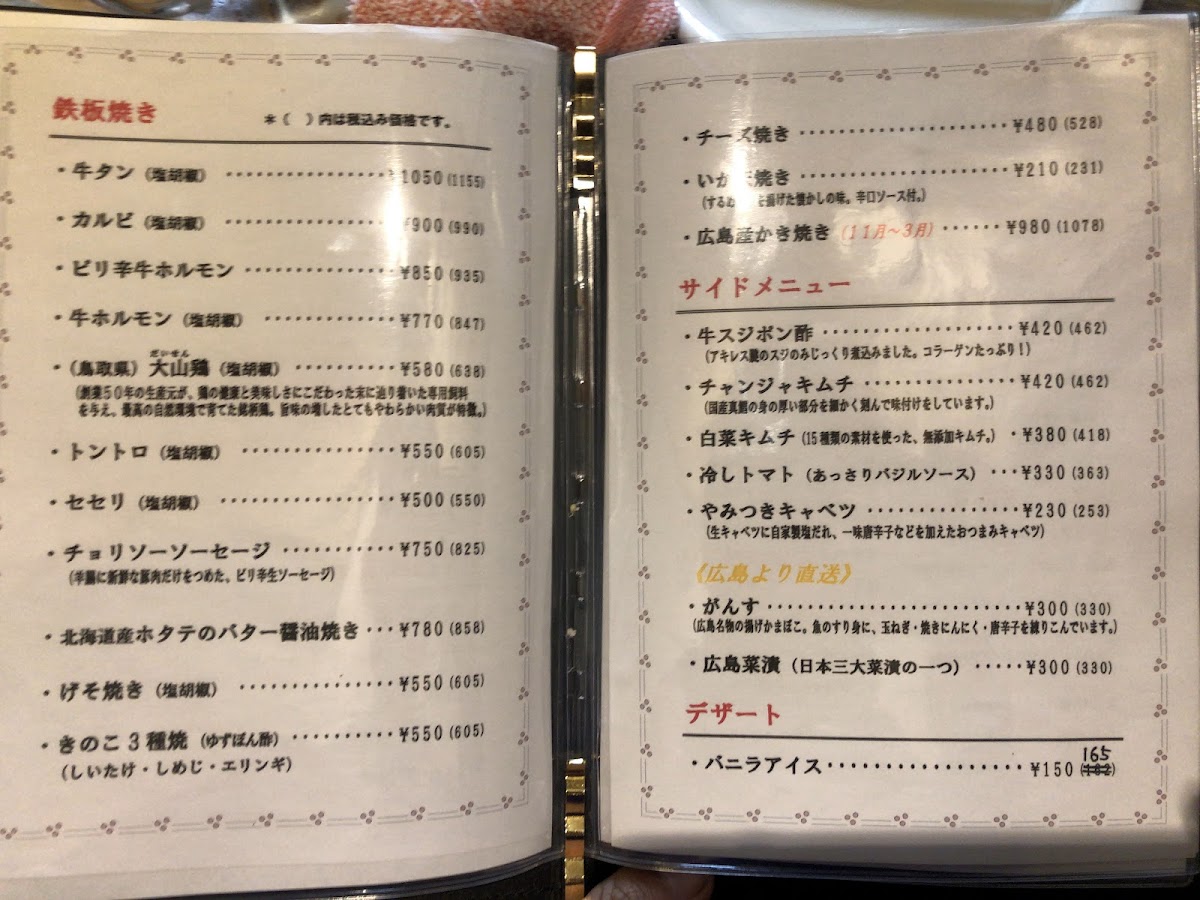 鉄板焼き
＊（　）内は税込み価格です。
・牛タン（塩胡椒） ・・・・・・・・・・・・・・・¥1050(1155)
・カルビ（塩胡椒） ・・・・・・・・・・・・・・・¥900(990)
・ピリ辛牛ホルモン ・・・・・・・・・・・・・・・¥850(935)
・牛ホルモン（塩胡椒） ・・・・・・・・・・・・¥770(847)
だいせん
・（鳥取県）大山鶏（塩胡椒） ・・・・・・・・・・¥580(638)
（創業５０年の生産元が、鶏の健康と美味しさにこだわった末に辿り着いた専用飼料
を与え、最高の自然環境で育てた銘柄鶏。旨味の増したとてもやわらかい肉質が特徴。）
・トントロ（塩胡椒） ・・・・・・・・・・・・・・¥550(605)
・セセリ（塩胡椒） ・・・・・・・・・・・・・・・・¥500(550)
・チョリソーソーセージ ・・・・・・・・・・・¥750(825)
（羊腸に新鮮な豚肉だけをつめた、ピリ辛生ソーセージ）
・北海道産ホタテのバター醤油焼き・・・¥780(858)
・げそ焼き（塩胡椒） ・・・・・・・・・・・・・・¥550(605)
・きのこ３種焼（ゆずぽん酢） ・・・・・・・・・・¥550(605)
（しいたけ・しめじ・エリンギ）
・チーズ焼き ・・・・・・・・・・・・・・・・・・・・・¥480(528)
・いか 焼き ・・・・・・・・・・・・・・・・・・・・・¥210(231)
（するめ を揚げた懐かしの味。辛口ソース付。）
・広島産かき焼き（１１月～３月） ・・・・・・¥980(1078)
サイドメニュー
・牛スジポン酢 ・・・・・・・・・・・・・・・・・・・¥420(462)
（アキレス腱のスジのみじっくり煮込みました。コラーゲンたっぷり！）
・チャンジャキムチ ・・・・・・・・・・・・・・・¥420(462)
（国産真鱈の身の厚い部分を細かく刻んで味付けをしています。）
・白菜キムチ（15種類の素材を使った、無添加キムチ。） ・¥380(418)
・冷しトマト（あっさりバジルソース） ・・・¥330(363)
・やみつきキャベツ ・・・・・・・・・・・・・・・¥230(253)
（生キャベツに自家製塩だれ、一味唐辛子などを加えたおつまみキャベツ）
《広島より直送》
・がんす・・・・・・・・・・・・・・・・・・・・・・・・・¥300(330)
（広島名物の揚げかまぼこ。魚のすり身に、玉ねぎ・焼きにんにく・唐辛子を練りこんでいます。）
・広島菜漬（日本三大菜漬の一つ） ・・・・・¥300(330)
デザート
165
・バニラアイス・・・・・・・・・・・・・・・・・・¥150(162)